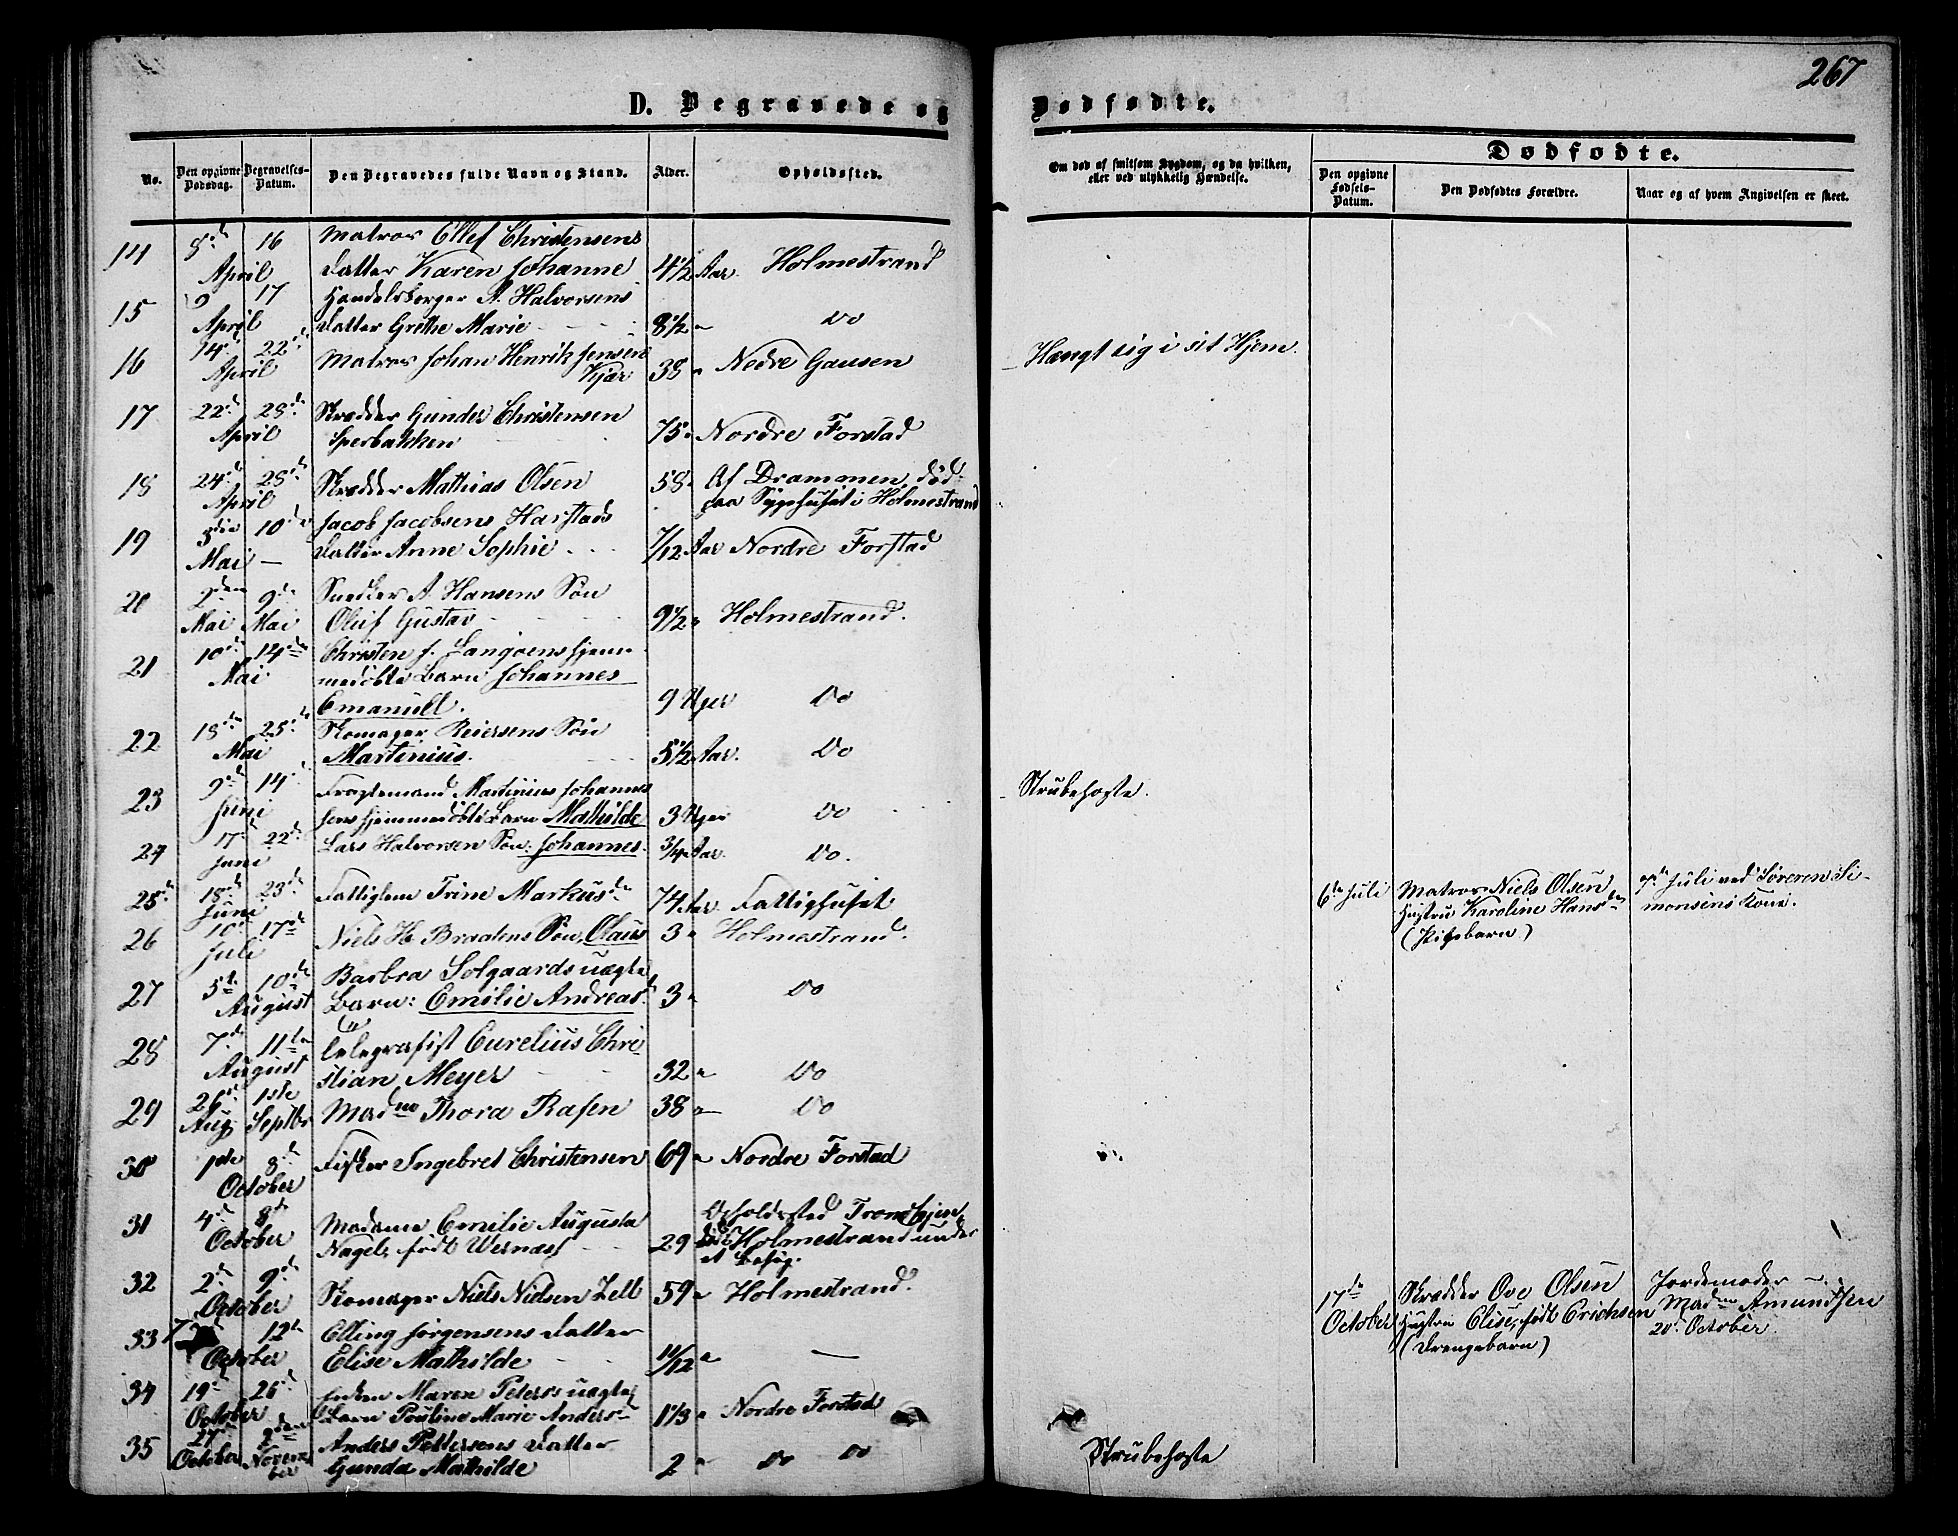 267
D. Begravede og
Dødfødte.
No.
Den opgivne Dødsdag.
Begravelses-Datum.
Den Begravedes fulde Navn og Stand.
Alder.
Opholdssted.
Om død af smitsom Sygdom, og da hvilken,
eller ved ulykkelig Hændelse.
Dødfødte.
Den opgivne Fødsels-Datum.
Den Dødfødtes Forældre.
Naar og af hvem Angivelsen er skeet.
14 8de April 16 Matros Ellef Christensens
Datter Karen Johanne 4 1/2 Aar. Holmestrand
15 9 April 17 Handelsborger A. Halvorsens
Datter Grethe Marie 8 1/2 " Do
16 14de April 22de Matros Johan Henrik Jensen
Kjær 38 " Nedre Gausen
Hængt sig i sit Hjem.
17 22de April 28de Skrædder Gunder Christensen
Sperbakken 75 " Nordre Forstad
18 24de April 28de Skrædder Mathias Olsen 58 " Af Drammen, død
paa Sygehuset i Holmestrand
19 3die Mai 10de Jacob Jacobsens Harstads
Datter Anne Sophie 7/12 Aar Nordre Forstad
20 2den Mai 9de Mai Snedker A. Hansens Søn
Oluf Gustav 9 1/2 " Holmestrand.
21 10de Mai 14de Christen J. Langøens hjem-
medøbte Barn Johannes
Emanuell. 9 Uger Do
22 18de Mai 25de Skomager Reiersens Søn
Martinius. 5 1/2 Aar. Do
23 9de Juni 14de Fragtemand Martinius Johannes
sens hjemmedøbte Barn Mathilde 3 Uger Do
Strubehoste.
24 17de Juni 22de Lars Halvorsen Søn: Johannes. 3/4 Aar. Do.
25de 18de Juni 23de Fattiglem Trine Markusdr 74 Aar Fattighuset
6te Juli Matros Niels Olsen
Hustru Karoline Hansdr
(Pigebarn)
7de Juli ved Søreren Si-
monsens Kone.
26 10de Juli 17de Niels H. Braatens Søn, Claus 3 " Holmestrand.
27 5te August 10de Barbra Solgaards uægte
Barn: Emilie Andreasd 3 " Do
28 7de August 11te Telegrafist Eurelius Chri-
stian Meyer 32 " Do
29 26de Aug. 1ste Septbr Madme Thora Rafen 38 " Do
30 1ste October 8de Fisker Ingebret Christensen 69 " Nordre Forstad
31 4de October 8de Madame Emilie Augusta
Nagel, født Wernass 29 Opholdssted Trondhjem,
død i Holmestrand under
et Besøg.
32 2de October 9de Skomager Niels Nielsen Zell 59 " Holmestrand.
17de October Skrædder Ove Olsen
Hustru Elise, født Erichsen
(Drengebarn)
Jordemoder
Madme Amundsen
20de October
33 7 October 12te Elling Jørgensens Datter
Elise Mathilde 11/12 " —
34 19de October 26de Enken Maren Peters's uægte
Barn Pouline Marie Andersd 1 1/3 " Nordre Forstad
35 27de October 2den November Anders Pettersens Datter
Gunda Mathilde 2 " Do Do
Strubehoste